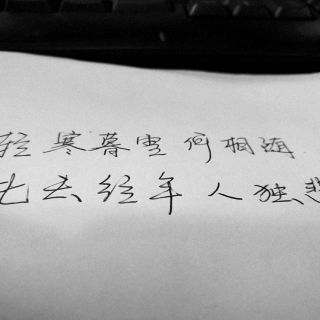 轻寒暮雪何相
此去经年人独悲